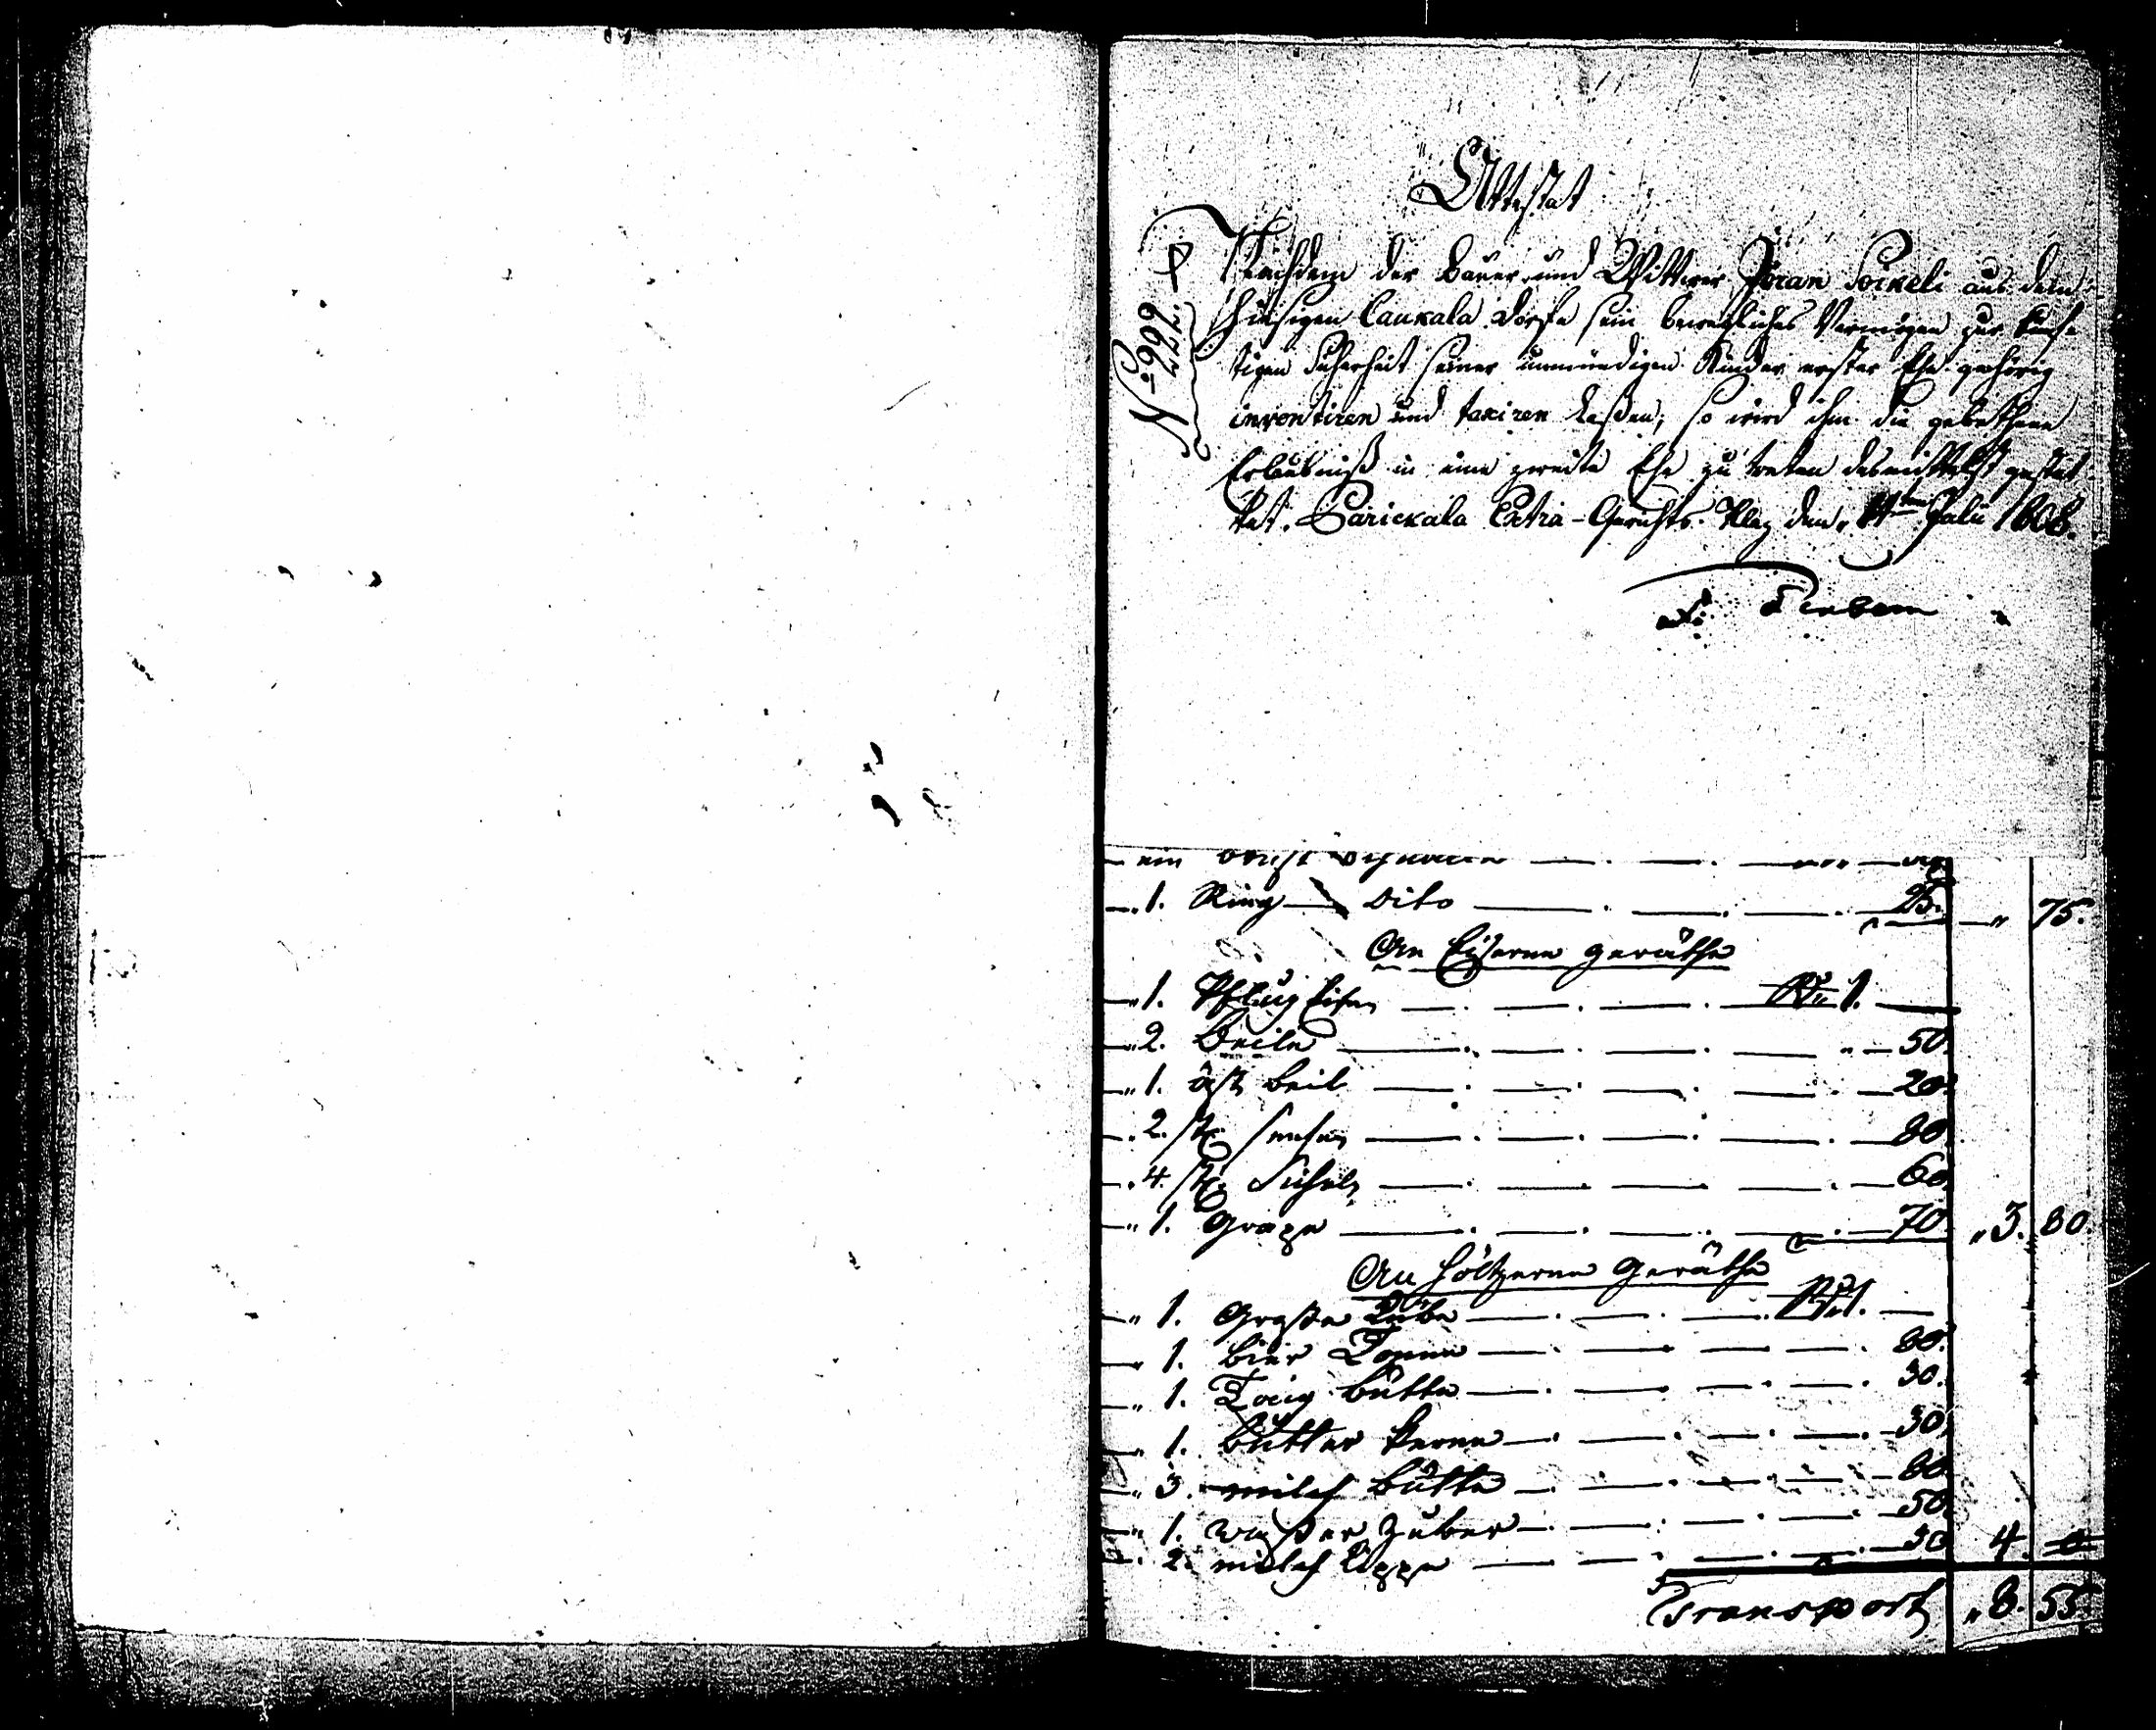 Attestat
N: 299.
Nachdem der Bauer und Wittwer Jöran Sorkeli aus dem
hiesigen Caukala Dorfe sein bewegliches Vermögen zur künf-
tigen Sicherheit seiner unmündigen Kinder erster Ehe gehörig
inventiren und taxiren laßen; so wird ihm die gebethene
Erlaubniß in eine zweite Ehe zu treten desmittelst gestat-
tet. Parickala Extra-Gerichts-Platz den Julii 1808.
ein
1. Ring Dito 25. 75.
An Eiserne Geräthe
1. Pflug Eisen Ru 1.
2. Beile 50.
1. äst beil 20.
2. st. sensen 80.
4. st. Sicheln 60.
1. Grape 70. 3. 80.
An höltzerne Geräthe
1. Große Kübe Ru 1.
1. bier Tonne 80.
1. Taig bütte 30.
1. butter kerne 30.
3. milch bütte 80.
1. waßer Zuber 50.
2. milch 30 4.
Transport 8. 55.